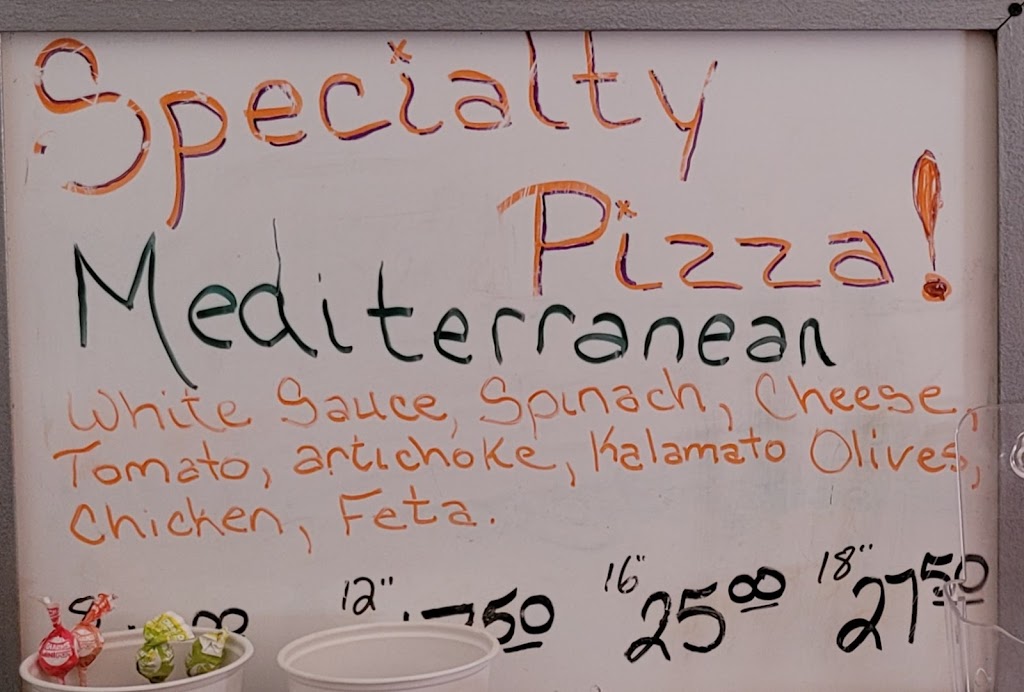 Specialty
Pizza!
Mediterranean
White Sauce, Spinach, Cheese,
Tomato, artichoke, Kalamato Olives,
Chicken, Feta.
12" 16" 18"
17 50 25 00 27 50